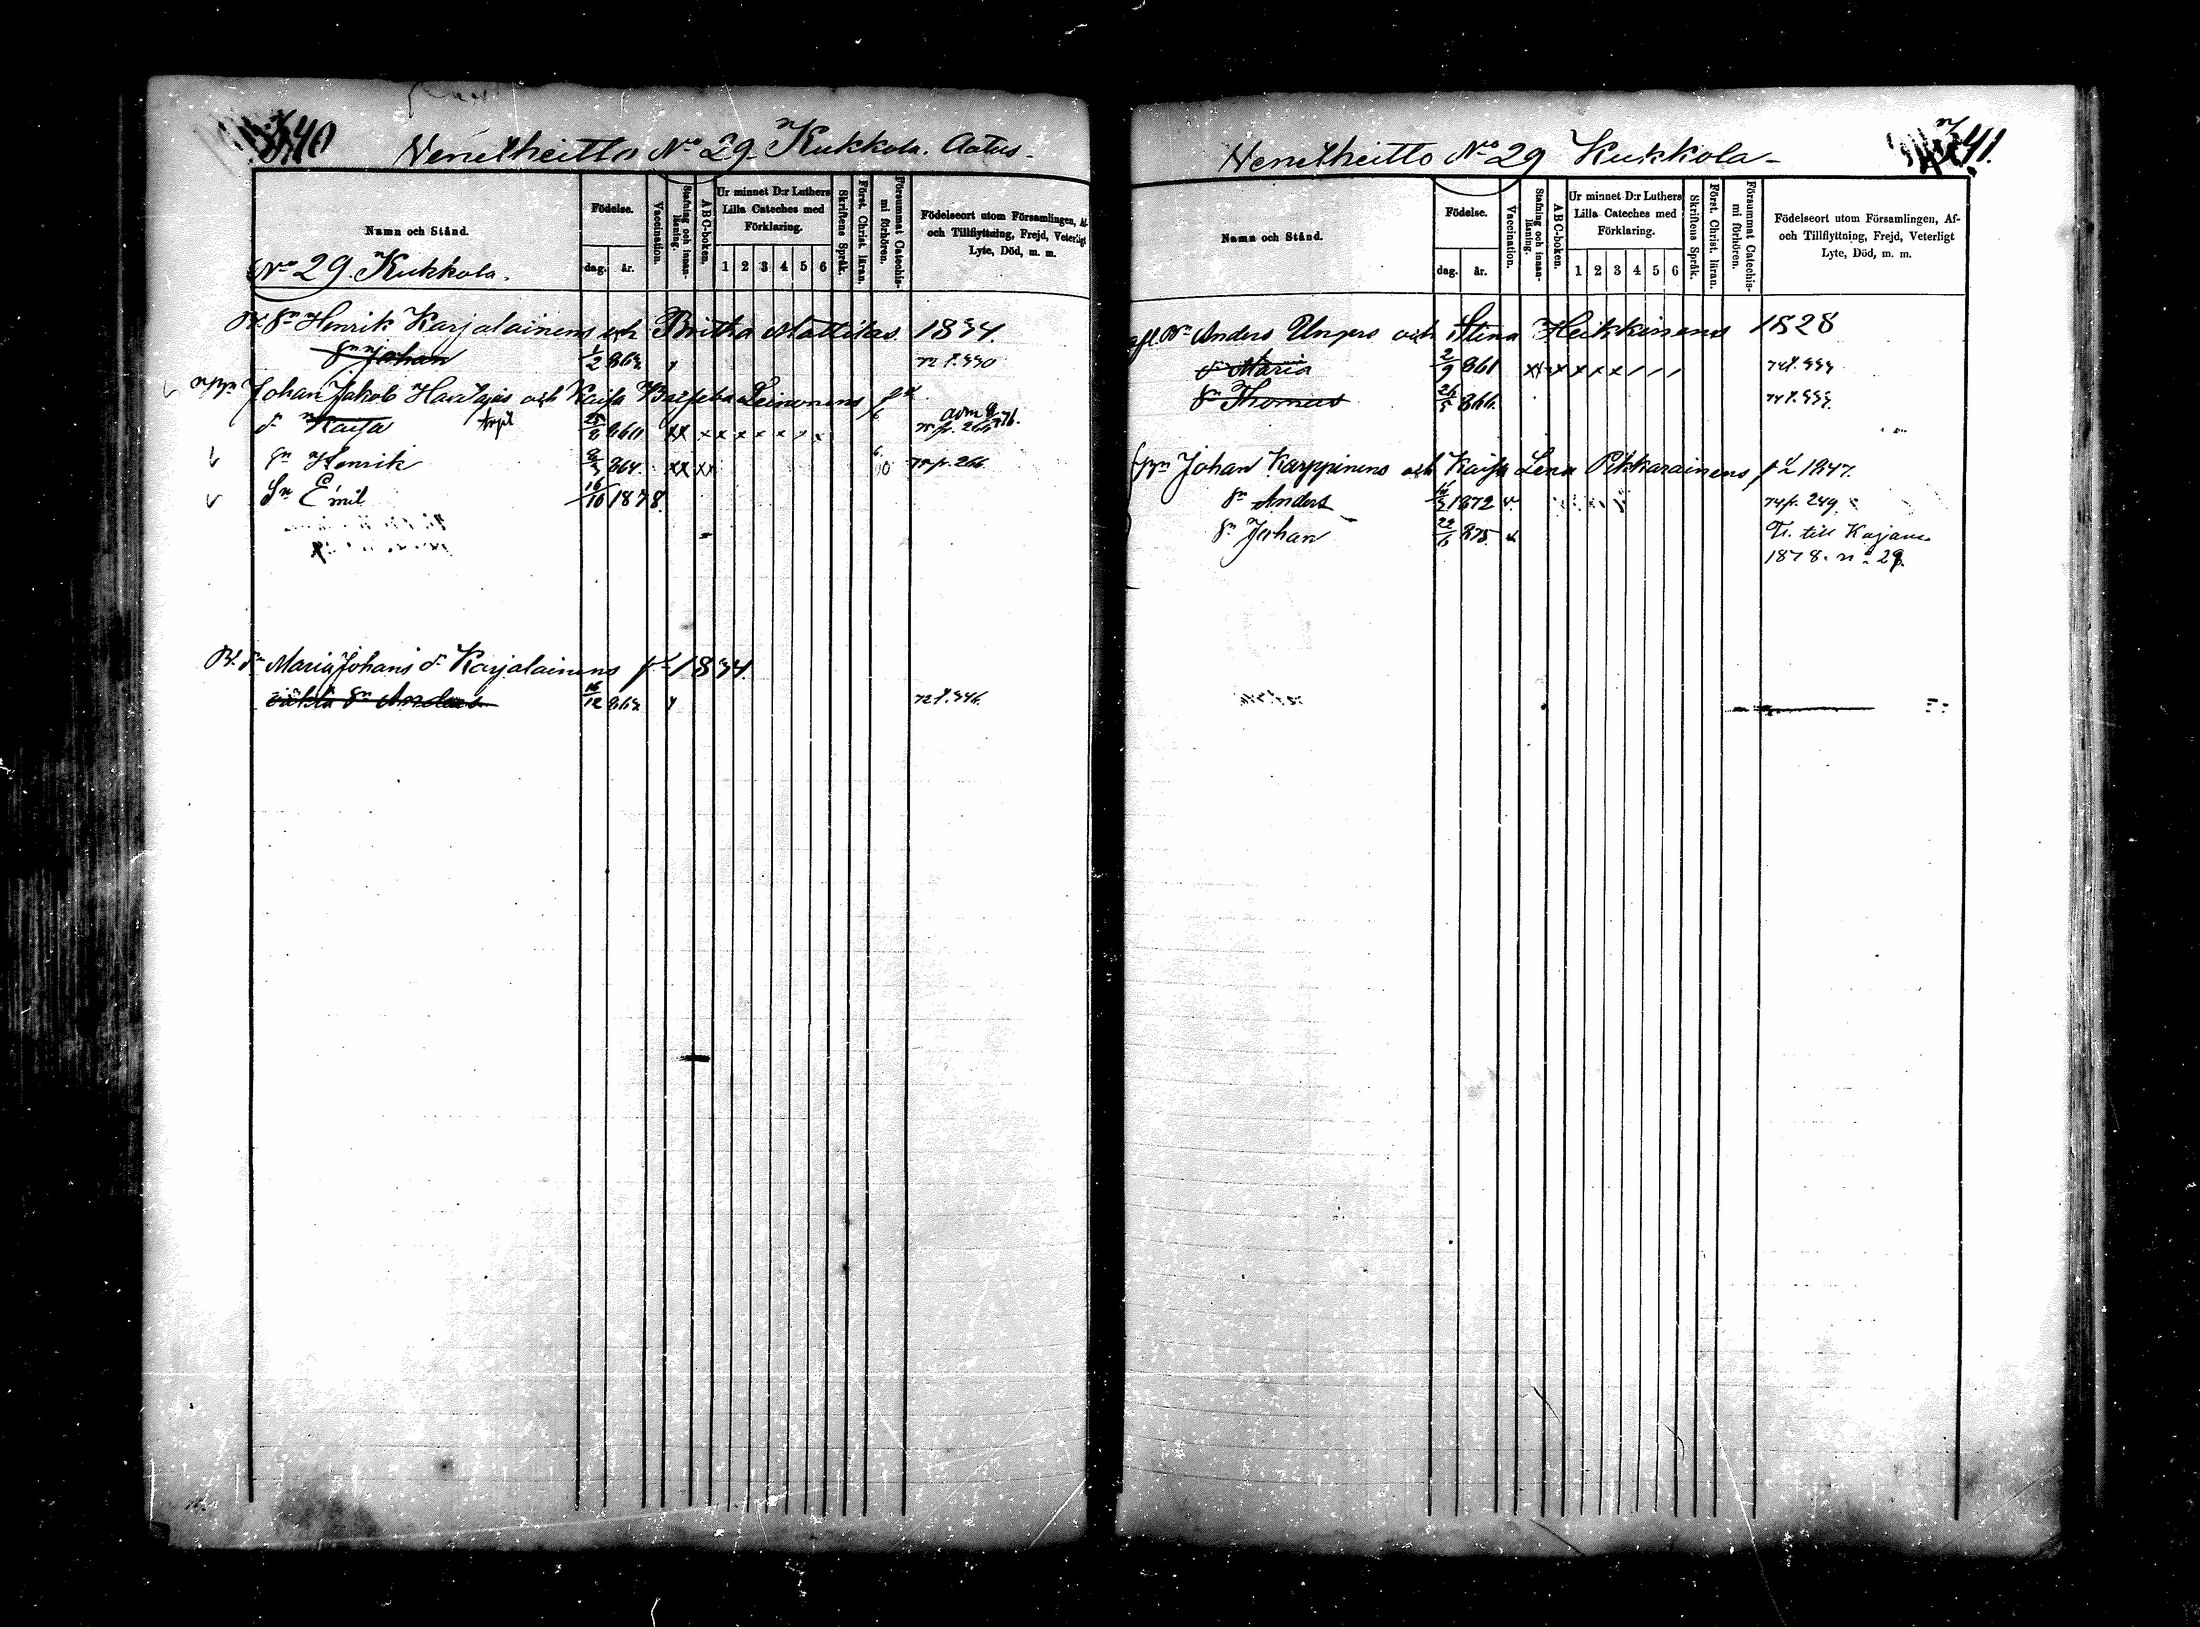 340
Neneltheitto No 29 Kukkola. Aatus.
Namn och Stånd.
Födelse.
dag.
år.
Vaccination.
Stafning och innan-läsning.
ABC-boken.
Ur minnet D:r Luthers
Lilla Cateches med
Förklaring.
1 2 3 4 5 6
Skriftens Språk.
Först. Christ. läran.
Försummat Catechis-
mi förhören.
Födelseort utom Församlingen, Af-
och Tillflyttning, Frejd, Veterligt
Lyte, Död, m. m.
No 29. Kukkola.
Henrik Karjalainens och Britha Mattilas 1834.
Sn Johan 1/2 863
Johan Jakob Hartajas och Kaisa Leinonens
dr Kaisa 860
Sn Henrik 864 xx xx 266
Sn Emil 16/10 1878
Maria Johans dr Karjalainens 1834.
oäkta Sn Anders 16/12 863
341.
Neneltheitto No 29 Kukkola
Namn och Stånd.
Födelse.
dag.
år.
Vaccination.
Stafning och innan-
läsning.
ABC-boken.
Ur minnet D:r Luthers
Lilla Cateches med
Förklaring.
1 2 3 4 5 6
Skriftens Språk.
Först. Christ. läran.
Försummat Catechis-
mi förhören.
Födelseort utom Församlingen, Af-
och Tillflyttning, Frejd, Veterligt
Lyte, Död, m. m.
Anders Ungers och Stina Heikkinens 1828
dr Maria 2/9 861
Sn Thomas 26/5 866
Johan Karppinens och Kaisa Lena Pikkarainens 1847.
Sn Anders 1872 249
Sn Johan 875 Fl. till Kajana
1878. no 29.